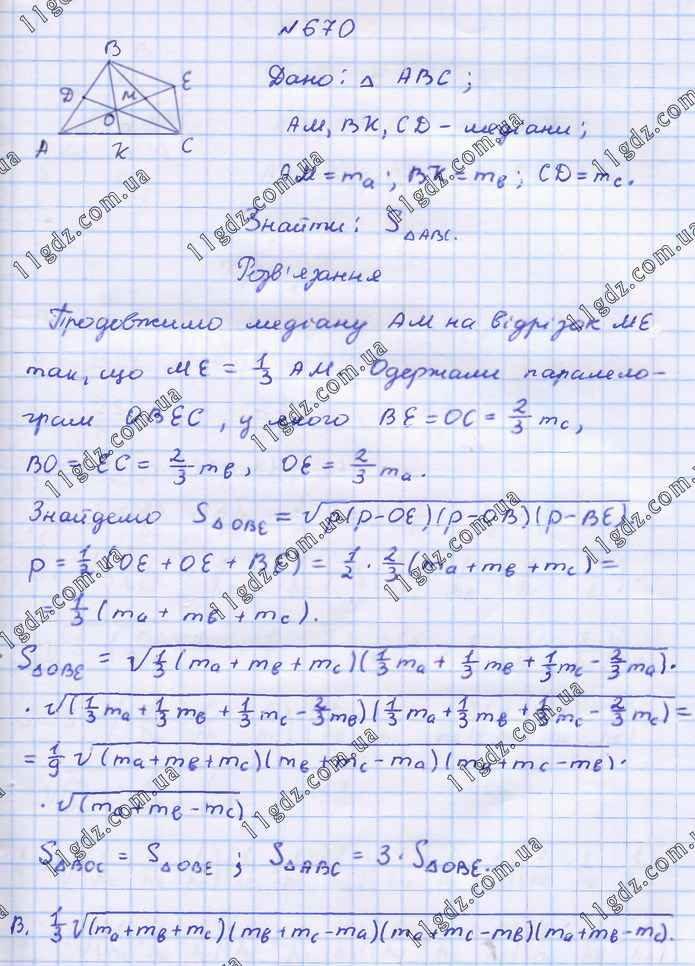 №670
B
E
D
M
O
A
K
C
Дано: △ ABC;
AM, BK, CD – медіани;
AM = mₐ; BK = m_b; CD = m_c.
Знайти: S△ABC.
Розв'язання
Продовжимо медіану AM на відрізок ME
так, що ME = 1/3 AM. Одержали парале­ло-
грам OBEC, у якого BE = OC = 2/3 m_c,
BO = EC = 2/3 m_b, OE = 2/3 mₐ.
Знайдемо S△OBE = √(p(p-OE)(p-OB)(p-BE)).
p = 1/2 (OE + OE + BE) = 1/2 · 2/3 (mₐ + m_b + m_c) =
= 1/3 (mₐ + m_b + m_c).
S△OBE = √(1/3 (mₐ + m_b + m_c)(1/3 mₐ + 1/3 m_b + 1/3 m_c - 2/3 mₐ)) ·
· √((1/3 mₐ + 1/3 m_b + 1/3 m_c - 2/3 m_b)(1/3 mₐ + 1/3 m_b + 1/3 m_c - 2/3 m_c)) =
= 1/9 √((mₐ + m_b + m_c)(m_b + m_c - mₐ)(mₐ + m_c - m_b)) ·
· √(mₐ + m_b - m_c)
S△BOC = S△OBE; S△ABC = 3 · S△OBE.
В. 1/3 √((mₐ + m_b + m_c)(m_b + m_c - mₐ)(mₐ + m_c - m_b)(mₐ + m_b - m_c)).
11gdz.com.ua